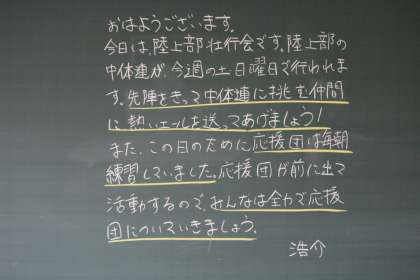 おはようございます。
今日は、陸上部壮行会です。陸上部の
中体連が、今週の土日曜日で行われま
す。先陣をきって中体連に挑む仲間
に、熱いエールを送ってあげましょう！
また、この日のために応援団は毎朝
練習していました。応援団が前に出て
活動するので、みんなは全力で応援
団についていきましょう。
浩介